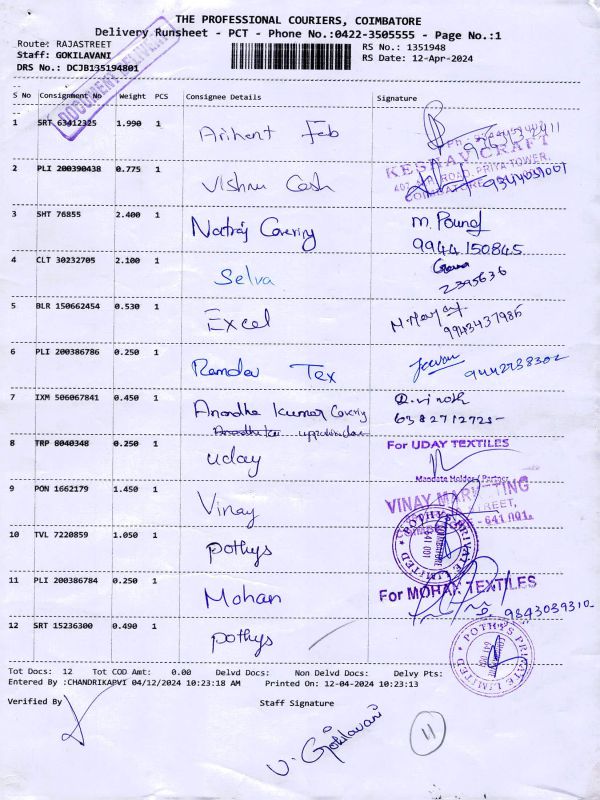 THE PROFESSIONAL COURIERS, COIMBATORE
Delivery Runsheet - PCT - Phone No.:0422-3505555 - Page No.:1
Route: RAJASTREET
Staff: GOKILAVANI
DRS No.: DCJB135194801
RS No.: 1351948
RS Date: 12-Apr-2024
DOCUMENT DELIVERY
S No Consignment No Weight PCS Consignee Details Signature
1 SRT 63412325 1.990 1 Arihent Feb
KESHAV CRAFT
ROAD, PRIYA TOWER,
COIMBATORE
2 PLI 200390438 0.775 1 Vishnu Cash
3 SHT 76855 2.400 1 Natraj Covering M.
9944150845
4 CLT 30232705 2.100 1 Selva
2395636
5 BLR 150662454 0.530 1 Excel 9943437986
6 PLI 200386786 0.250 1 Ramdev Tex 9442238302
7 IXM 506067841 0.450 1 Anandha Kumar Covering D.Vinoth
6382712725-
8 TRP 8040348 0.250 1 uday For UDAY TEXTILES
Mandate Holder / Partner
9 PON 1662179 1.450 1 Vinay VINAY MARKETING
STREET,
- 641 001.
10 TVL 7220859 1.050 1 pothys POTHYS PRIVATE LIMITED
COIMBATORE
641 001
11 PLI 200386784 0.250 1 Mohan For MOHAN TEXTILES
9843039310-
12 SRT 15236300 0.490 1 pothys POTHYS PRIVATE LIMITED
Tot Docs: 12 Tot COD Amt: 0.00 Delvd Docs: Non Delvd Docs: Delvy Pts:
Entered By :CHANDRIKAPVI 04/12/2024 10:23:18 AM Printed On: 12-04-2024 10:23:13
Verified By Staff Signature
V. Gokilavani
11